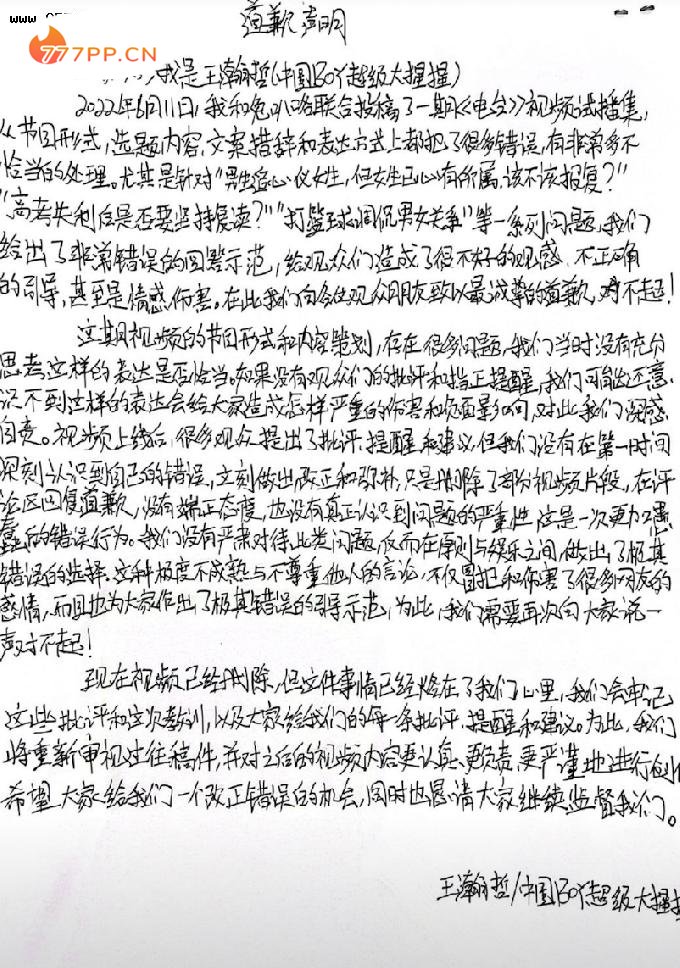 www
777PP.CN
道歉声明
我是王瀚哲(中国BOY超级大猩猩)
2022年6月11日,我和兔叭咯联合投稿了一期《电台》视频试播集,
从节目形式,选题内容,文案措辞和表达方式上都犯了很多错误,有非常多不
恰当的处理。尤其是针对“男生心仪女生,但女生已心有所属,该不该报复?”
“高考失利后是否要坚持复读?”“打篮球调侃男女关系”等一系列问题,我们
给出了非常错误的回答示范,给观众们造成了很不好的观感、不正确
的引导,甚至是情感伤害。在此我们向各位观众朋友致以最诚挚的道歉,对不起!
这期视频的节目形式和内容策划,存在很多问题,我们当时没有充分
思考这样的表达是否恰当。如果没有观众们的批评和指正提醒,我们可能还意
识不到这样的表达会给大家造成怎样严重的伤害和负面影响,对此我们深感
自责。视频上线后,很多观众提出了批评、提醒和建议,但我们没有在第一时间
深刻认识到自己的错误,立刻做出改正和弥补,只是删除了部分视频片段,在评
论区回复道歉,没有端正态度,也没有真正认识到问题的严重性,这是一次更加愚
蠢的错误行为。我们没有严肃对待此类问题,反而在原则与娱乐之间,做出了极其
错误的选择。这种极度不成熟与不尊重他人的言论,不仅冒犯和伤害了很多网友的
感情,而且也为大家作出了极其错误的引导示范,为此,我们需要再次向大家说一
声对不起!
现在视频已经删除,但这件事情已经烙在了我们心里,我们会牢记
这些批评和这次教训,以及大家给我们的每一条批评、提醒和建议。为此,我们
将重新审视过往稿件,并对之后的视频内容更认真、更负责、更严谨地进行创作
希望大家给我们一个改正错误的机会,同时也恳请大家继续监督我们。
王瀚哲/中国BOY超级大猩猩